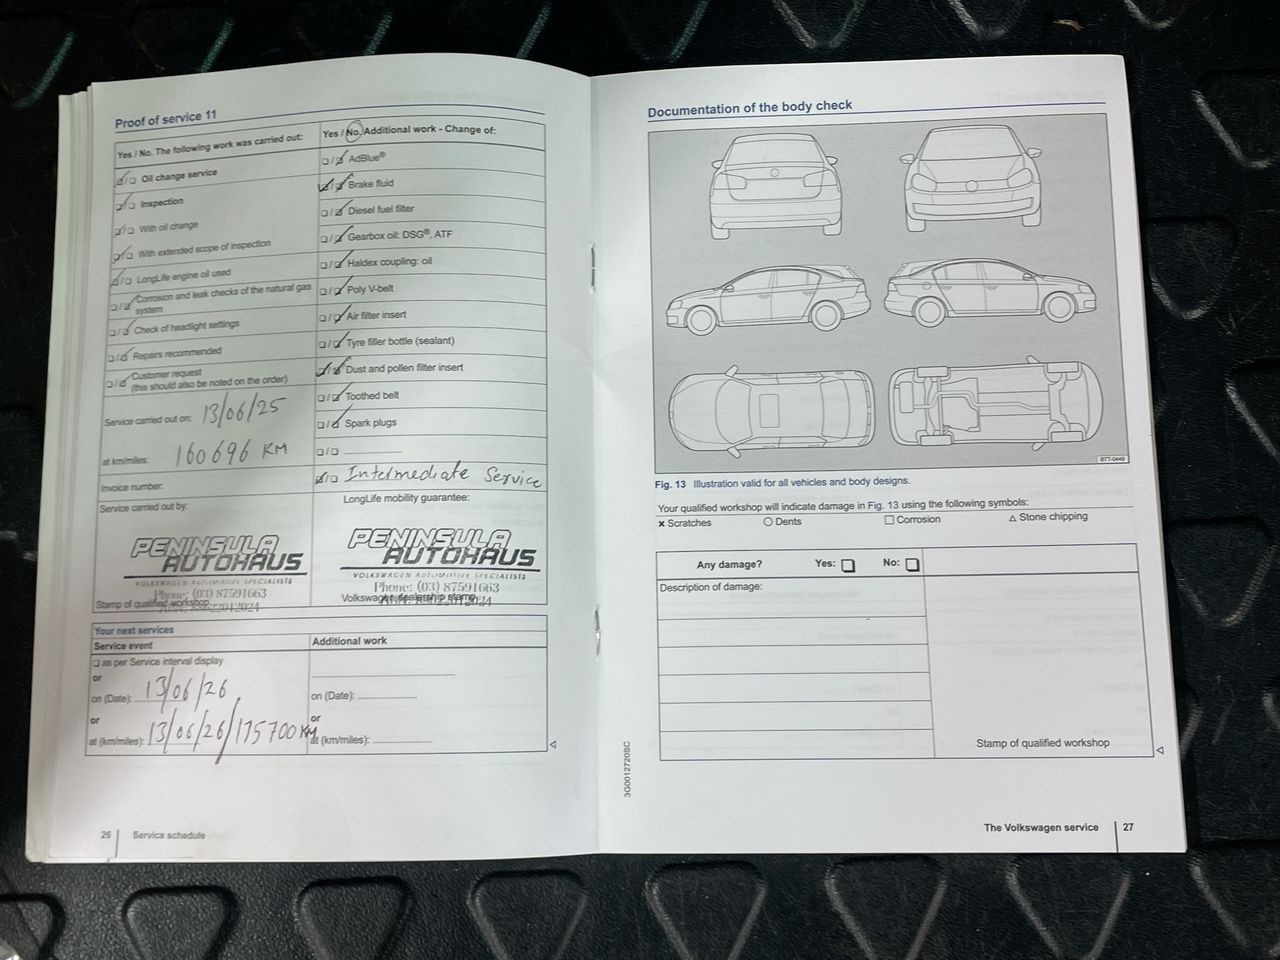 Proof of service 11
Yes / No. The following work was carried out:
Oil change service
Inspection
With oil change
With extended scope of inspection
LongLife engine oil used
Corrosion and leak checks of the natural gas
system
Check of headlight settings
Repairs recommended
Customer request
(this should also be noted on the order)
Service carried out on: 13/06/25
at km/miles: 160696 KM
Invoice number:
Service carried out by:
PENINSULA
AUTOHAUS
VOLKSWAGEN AUTOMOTIVE SPECIALISTS
Phone: (03) 87591663
Stamp of qualified workshop
Yes / No. Additional work - Change of:
AdBlue®
Brake fluid
Diesel fuel filter
Gearbox oil: DSG®, ATF
Haldex coupling: oil
Poly V-belt
Air filter insert
Tyre filler bottle (sealant)
Dust and pollen filter insert
Toothed belt
Spark plugs
Intermediate Service
LongLife mobility guarantee:
PENINSULA
AUTOHAUS
VOLKSWAGEN AUTOMOTIVE SPECIALISTS
Phone: (03) 87591663
Volkswagen dealership stamp
Your next services
Service event
as per Service interval display
or
on (Date): 13/06/26
or
at (km/miles): 13/06/26/175700 KM
Additional work
on (Date):
or
at (km/miles):
26 Service schedule
Documentation of the body check
BTT-0449
Fig. 13 Illustration valid for all vehicles and body designs.
Your qualified workshop will indicate damage in Fig. 13 using the following symbols:
× Scratches ○ Dents □ Corrosion △ Stone chipping
Any damage? Yes: No:
Description of damage:
Stamp of qualified workshop
3G0012720SC
The Volkswagen service 27